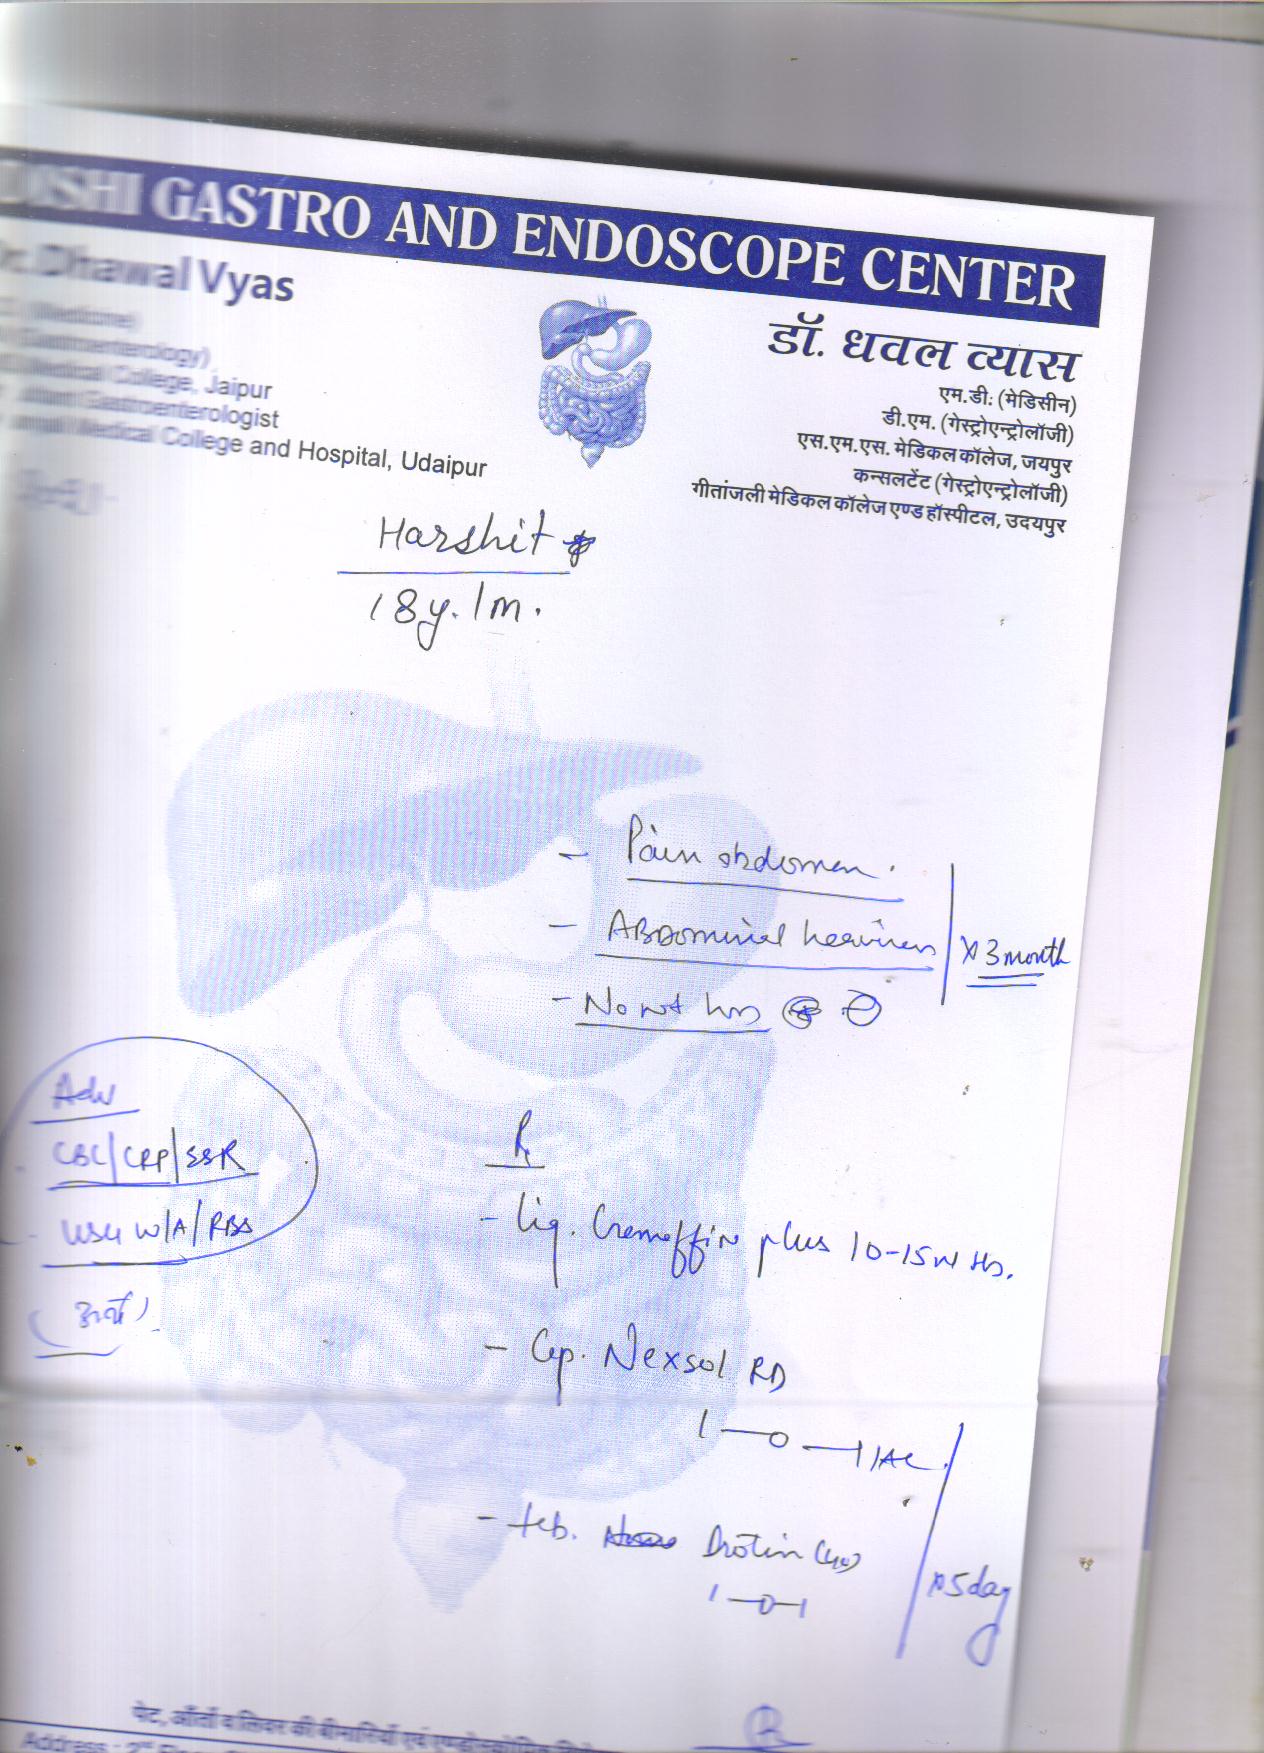 GASTRO AND ENDOSCOPE CENTER
Dr. Dhawal Vyas
(Medicine)
(Gastroenterology)
Medical College, Jaipur
Gastroenterologist
Medical College and Hospital, Udaipur
डॉ. धवल व्यास
एम.डी: (मेडिसीन)
डी.एम. (गेस्ट्रोएन्ट्रोलॉजी)
एस.एम.एस. मेडिकल कॉलेज, जयपुर
कन्सलटेंट (गेस्ट्रोएन्ट्रोलॉजी)
गीतांजली मेडिकल कॉलेज एण्ड हॉस्पीटल, उदयपुर
Harshit
18y./m.
- Pain abdomen.
- Abdominal heaviness
x 3 month
- No wt loss
Adv
CBC/CRP/
W/A/RBS
R
- Liq. Cremaffin plus 10-15 Hs.
- Cap. Nexsol RD
1—0—1/AC
- tab. Drotin
1-0-1
x 5 day
पेट, आँतों व लिवर की बीमारियों एवं
Address : 2nd